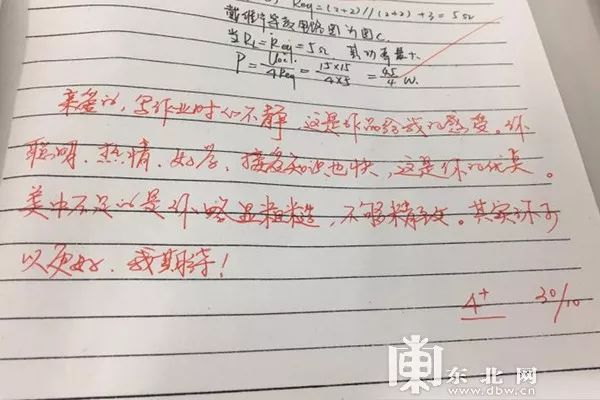 2) Req=(2+2)//(2+2)+3=5Ω
戴维宁等效电路图为图c.
当RL=Req=5Ω 其功率最大.
P=Uoc²/4Req=15×15/4×5=45/4 W.
亲爱的,写作业时心不静,这是作品给我的感受。你
聪明、热情、好学、接受知识也快,这是你的优点。
美中不足的是你略显粗糙,不够精致。其实你可
以更好,我期待!
4+ 30/10
東北网
www.dbw.cn